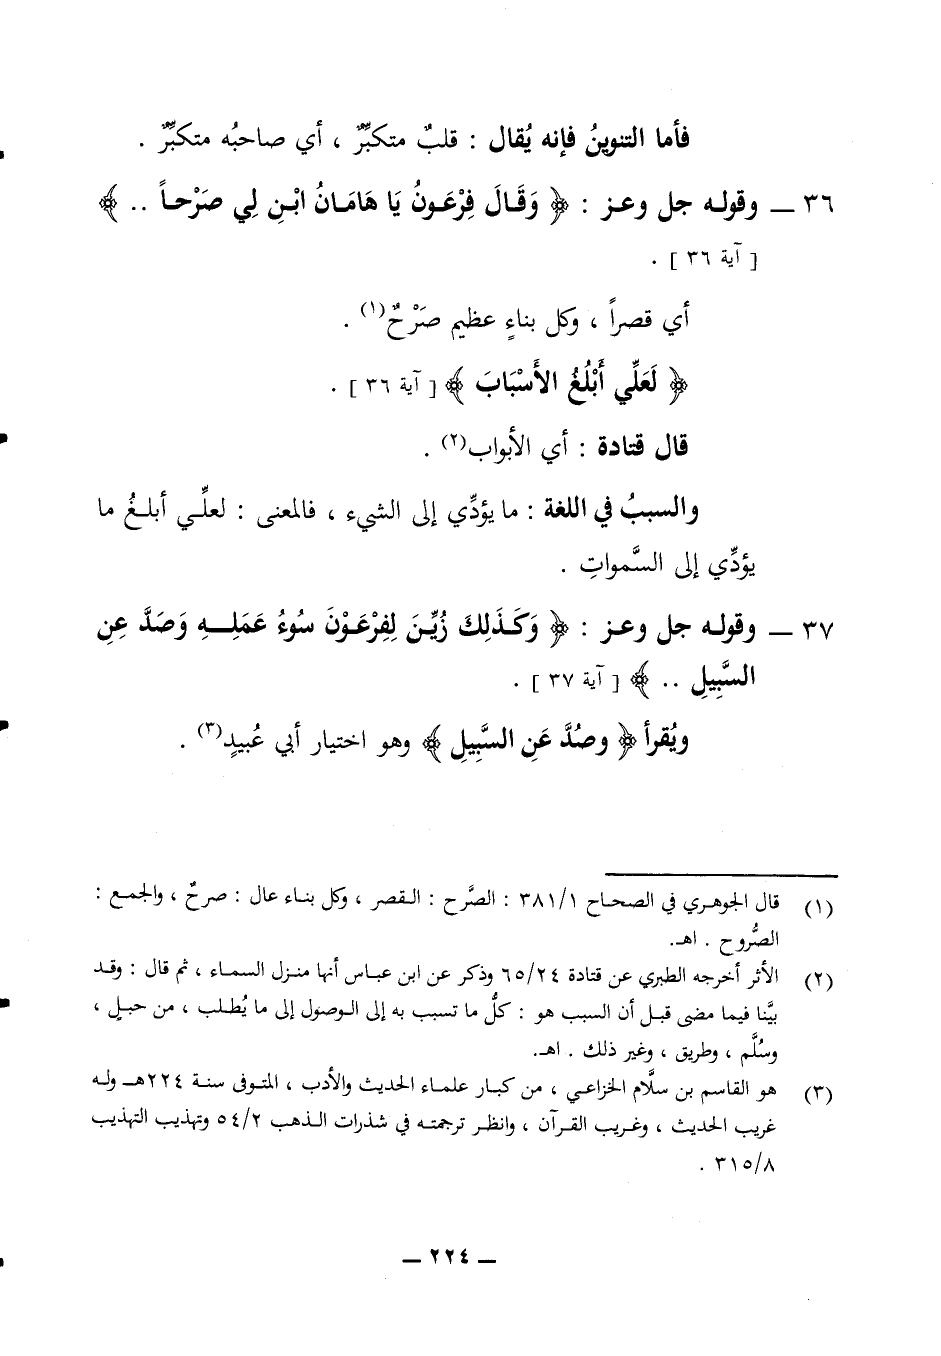 فأما التنوينُ فإنه يُقال : قلبٌ متكبِّرٌ ، أي صاحبُه متكبِّرٌ .
٣٦ ـ وقوله جل وعز : ﴿ وَقَالَ فِرْعَونُ يَا هَامَانُ ابْنِ لِي صَرْحاً .. ﴾
[ آية ٣٦ ] .
أي قصراً ، وكل بناءٍ عظيم صَرْحٌ(١) .
﴿ لَعَلِّي أَبْلُغُ الأَسْبَابَ ﴾ [ آية ٣٦ ] .
قال قتادة : أي الأبواب(٢) .
والسببُ في اللغة : ما يؤدِّي إلى الشيء ، فالمعنى : لعلِّي أبلغُ ما
يؤدِّي إلى السَّمواتِ .
٣٧ ـ وقوله جل وعز : ﴿ وَكَذَلِكَ زُيِّنَ لِفِرْعَوْنَ سُوءُ عَمَلِهِ وَصَدَّ عِنِ
السَّبِيلِ .. ﴾ [ آية ٣٧ ] .
ويُقرأ ﴿ وصُدَّ عَنِ السَّبِيلِ ﴾ وهو اختيار أبي عُبيدٍ(٣) .
(١) قال الجوهري في الصحاح ٣٨١/١ : الصَّرح : القصر ، وكل بناء عال : صرحٌ ، والجمع :
الصُّروح . اهـ.
(٢) الأثر أخرجه الطبري عن قتادة ٦٥/٢٤ وذكر عن ابن عباس أنها منزل السماء ، ثم قال : وقد
بيَّنا فيما مضى قبل أن السبب هو : كلُّ ما تسبب به إلى الوصول إلى ما يُطلب ، من حبلٍ ،
وسُلَّم ، وطريق ، وغير ذلك . اهـ.
(٣) هو القاسم بن سلَّام الخزاعي ، من كبار علماء الحديث والأدب ، المتوفى سنة ٢٢٤هـ وله
غريب الحديث ، وغريب القرآن ، وانظر ترجمته في شذرات الذهب ٥٤/٢ وتهذيب التهذيب
٣١٥/٨ .
ـ ٢٢٤ ـ